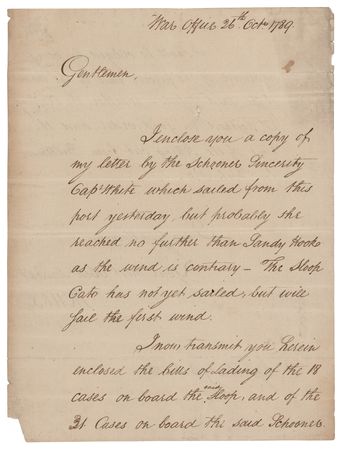 War Office 26th Octr 1789
Gentlemen,
I enclose you a copy of
my letter by the Schooner Sincerity
Capt White which sailed from this
port yesterday, but probably she
reached no further than Sandy Hook
as the wind is contrary – The Sloop
Cato has not yet sailed, but will
sail the first wind.
I now transmit you herein
enclosed the bills of Lading of the 18
cases on board the said Sloop, and of the
31 Cases on board the said Schooner